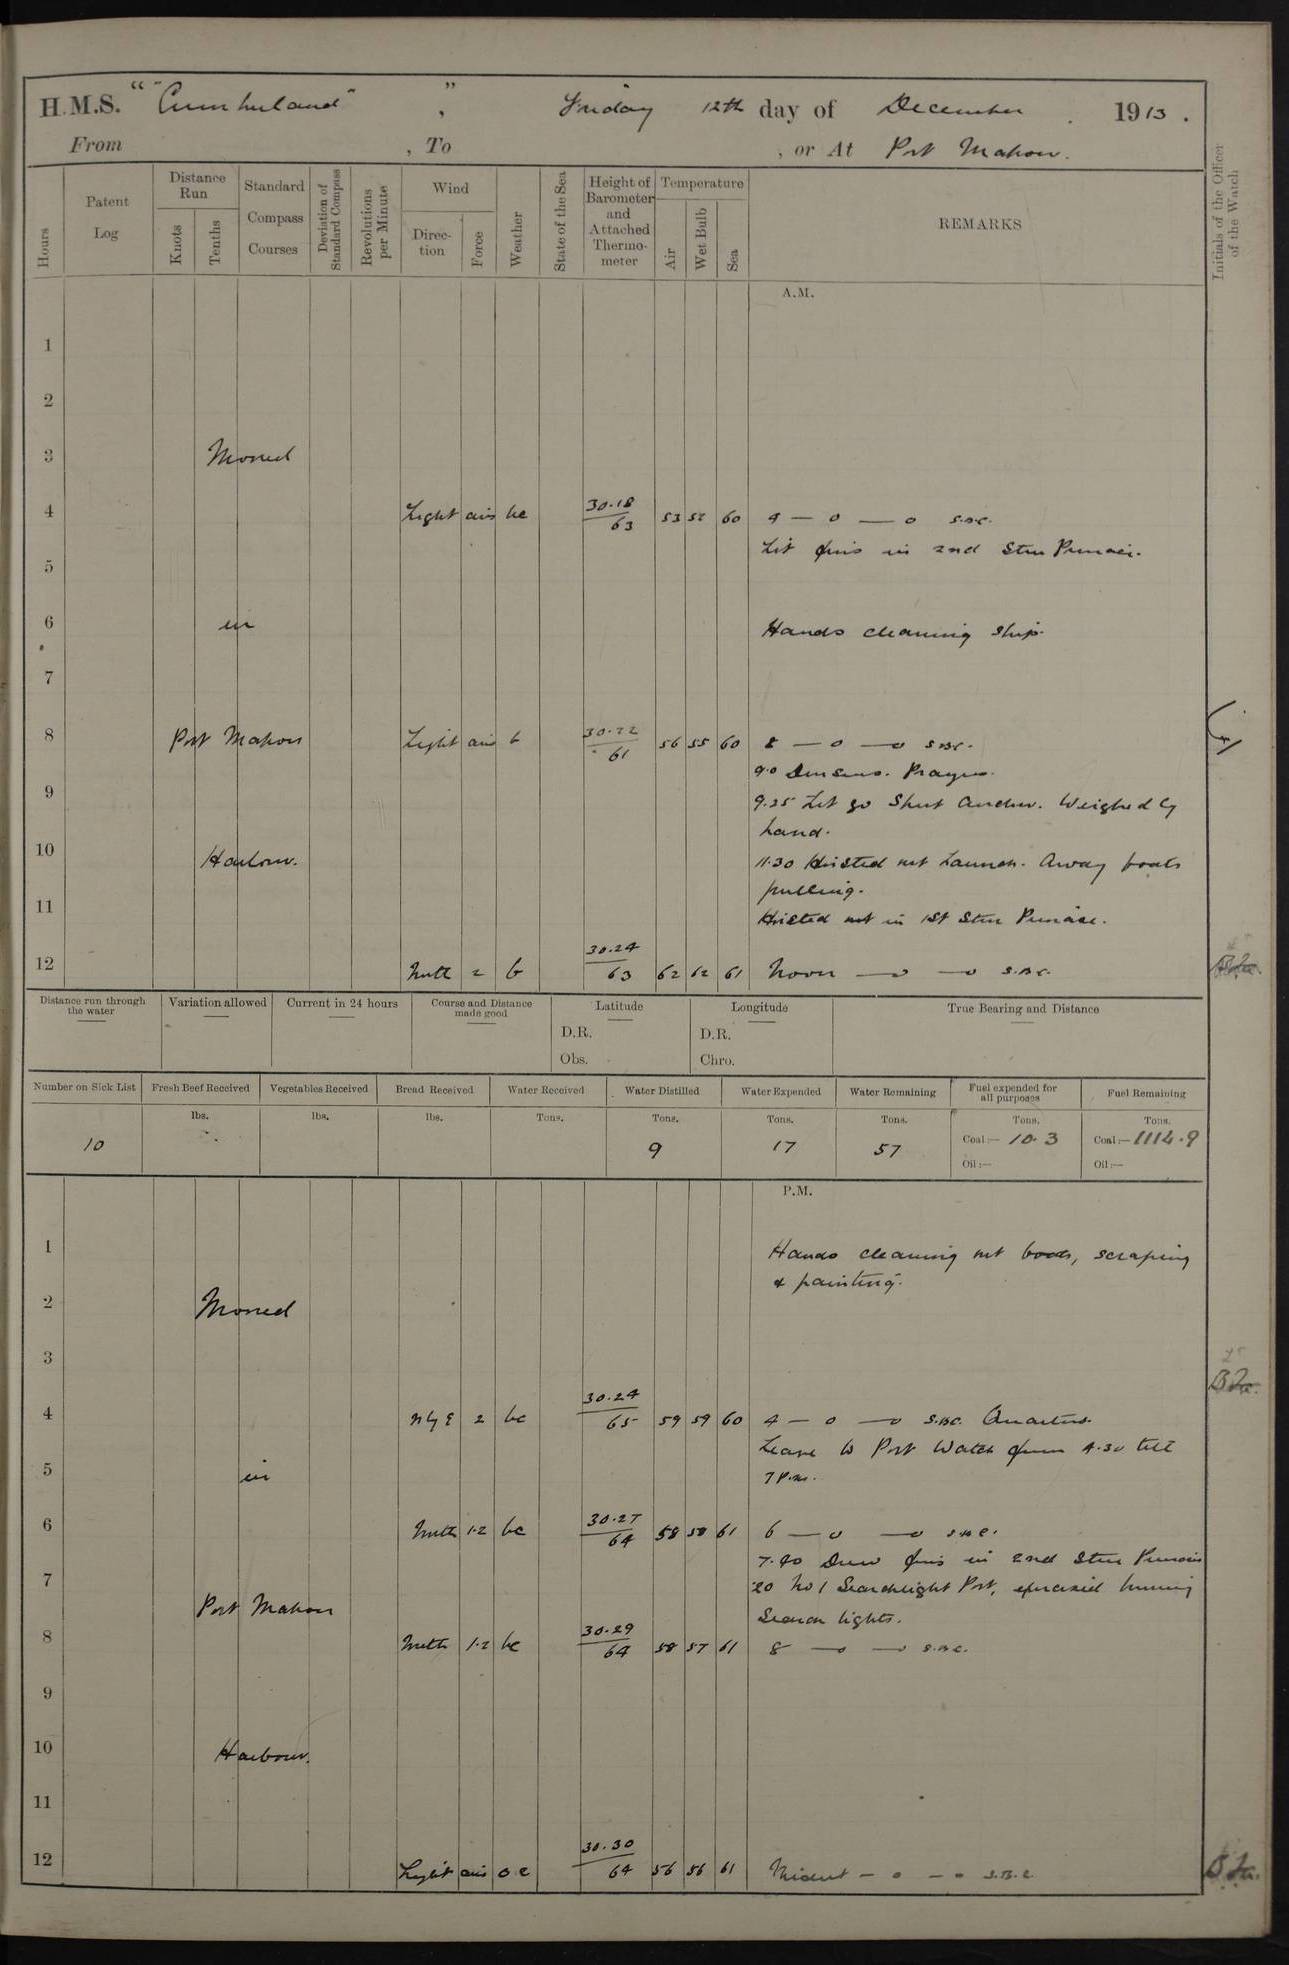 H.M.S. "Cumberland", Friday 12th day of December 1913.
From , To , or At Port Mahon.
Hours
Patent Log
Distance Run
Knots
Tenths
Standard Compass Courses
Deviation of Standard Compass
Revolutions per Minute
Wind
Direction
Force
Weather
State of the Sea
Height of Barometer and Attached Thermometer
Temperature
Air
Wet Bulb
Sea
REMARKS
Initials of the Officer of the Watch
A.M.
1
2
3 Moored
4 Light airs bc 30.18 63 53 52 60 4 — o — o S.B.C.
Lit fires in 2nd Stm Pinnace.
5
6 in Hands cleaning ship.
7
8 Port Mahon Light airs b 30.22 61 56 55 60 8 — o — o S.B.C.
9.0 Divisions. Prayers.
9
9.25 Let go Sheet anchor. Weighed by
hand.
10 Harbour. 11.30 Hoisted out Launch. Away boats
pulling.
11
Hoisted out in 1st Stm Pinnace.
12 North 2 b 30.24 63 62 62 61 Noon — o — o S.B.C.
Distance run through the water
Variation allowed
Current in 24 hours
Course and Distance made good
Latitude
D.R.
Obs.
Longitude
D.R.
Chro.
True Bearing and Distance
Number on Sick List
Fresh Beef Received
Vegetables Received
Bread Received
Water Received
Water Distilled
Water Expended
Water Remaining
Fuel expended for all purposes
Fuel Remaining
lbs. lbs. lbs. Tons. Tons. Tons. Tons. Tons. Tons.
10 9 17 57 Coal:— 10.3 Coal:— 1114.9
Oil:— Oil:—
P.M.
1 Hands cleaning out boats, scraping
& painting.
2 Moored
3
4 N by E 2 bc 30.24 65 59 59 60 4 — o — o S.B.C. Quarters.
Leave to Port Watch from 4.30 till
5 in 7 P.M.
6 North 1.2 bc 30.27 64 58 58 61 6 — o — o S.B.C.
7.40 Drew fires in 2nd Stm Pinnace
7
20 No 1 Searchlight Port, exercised burning
Port Mahon
Search lights.
8 North 1.2 bc 30.29 64 58 57 61 8 — o — o S.B.C.
9
10 Harbour.
11
12 Light airs o c 30.30 64 56 56 61 Midnt — o — o S.B.C.